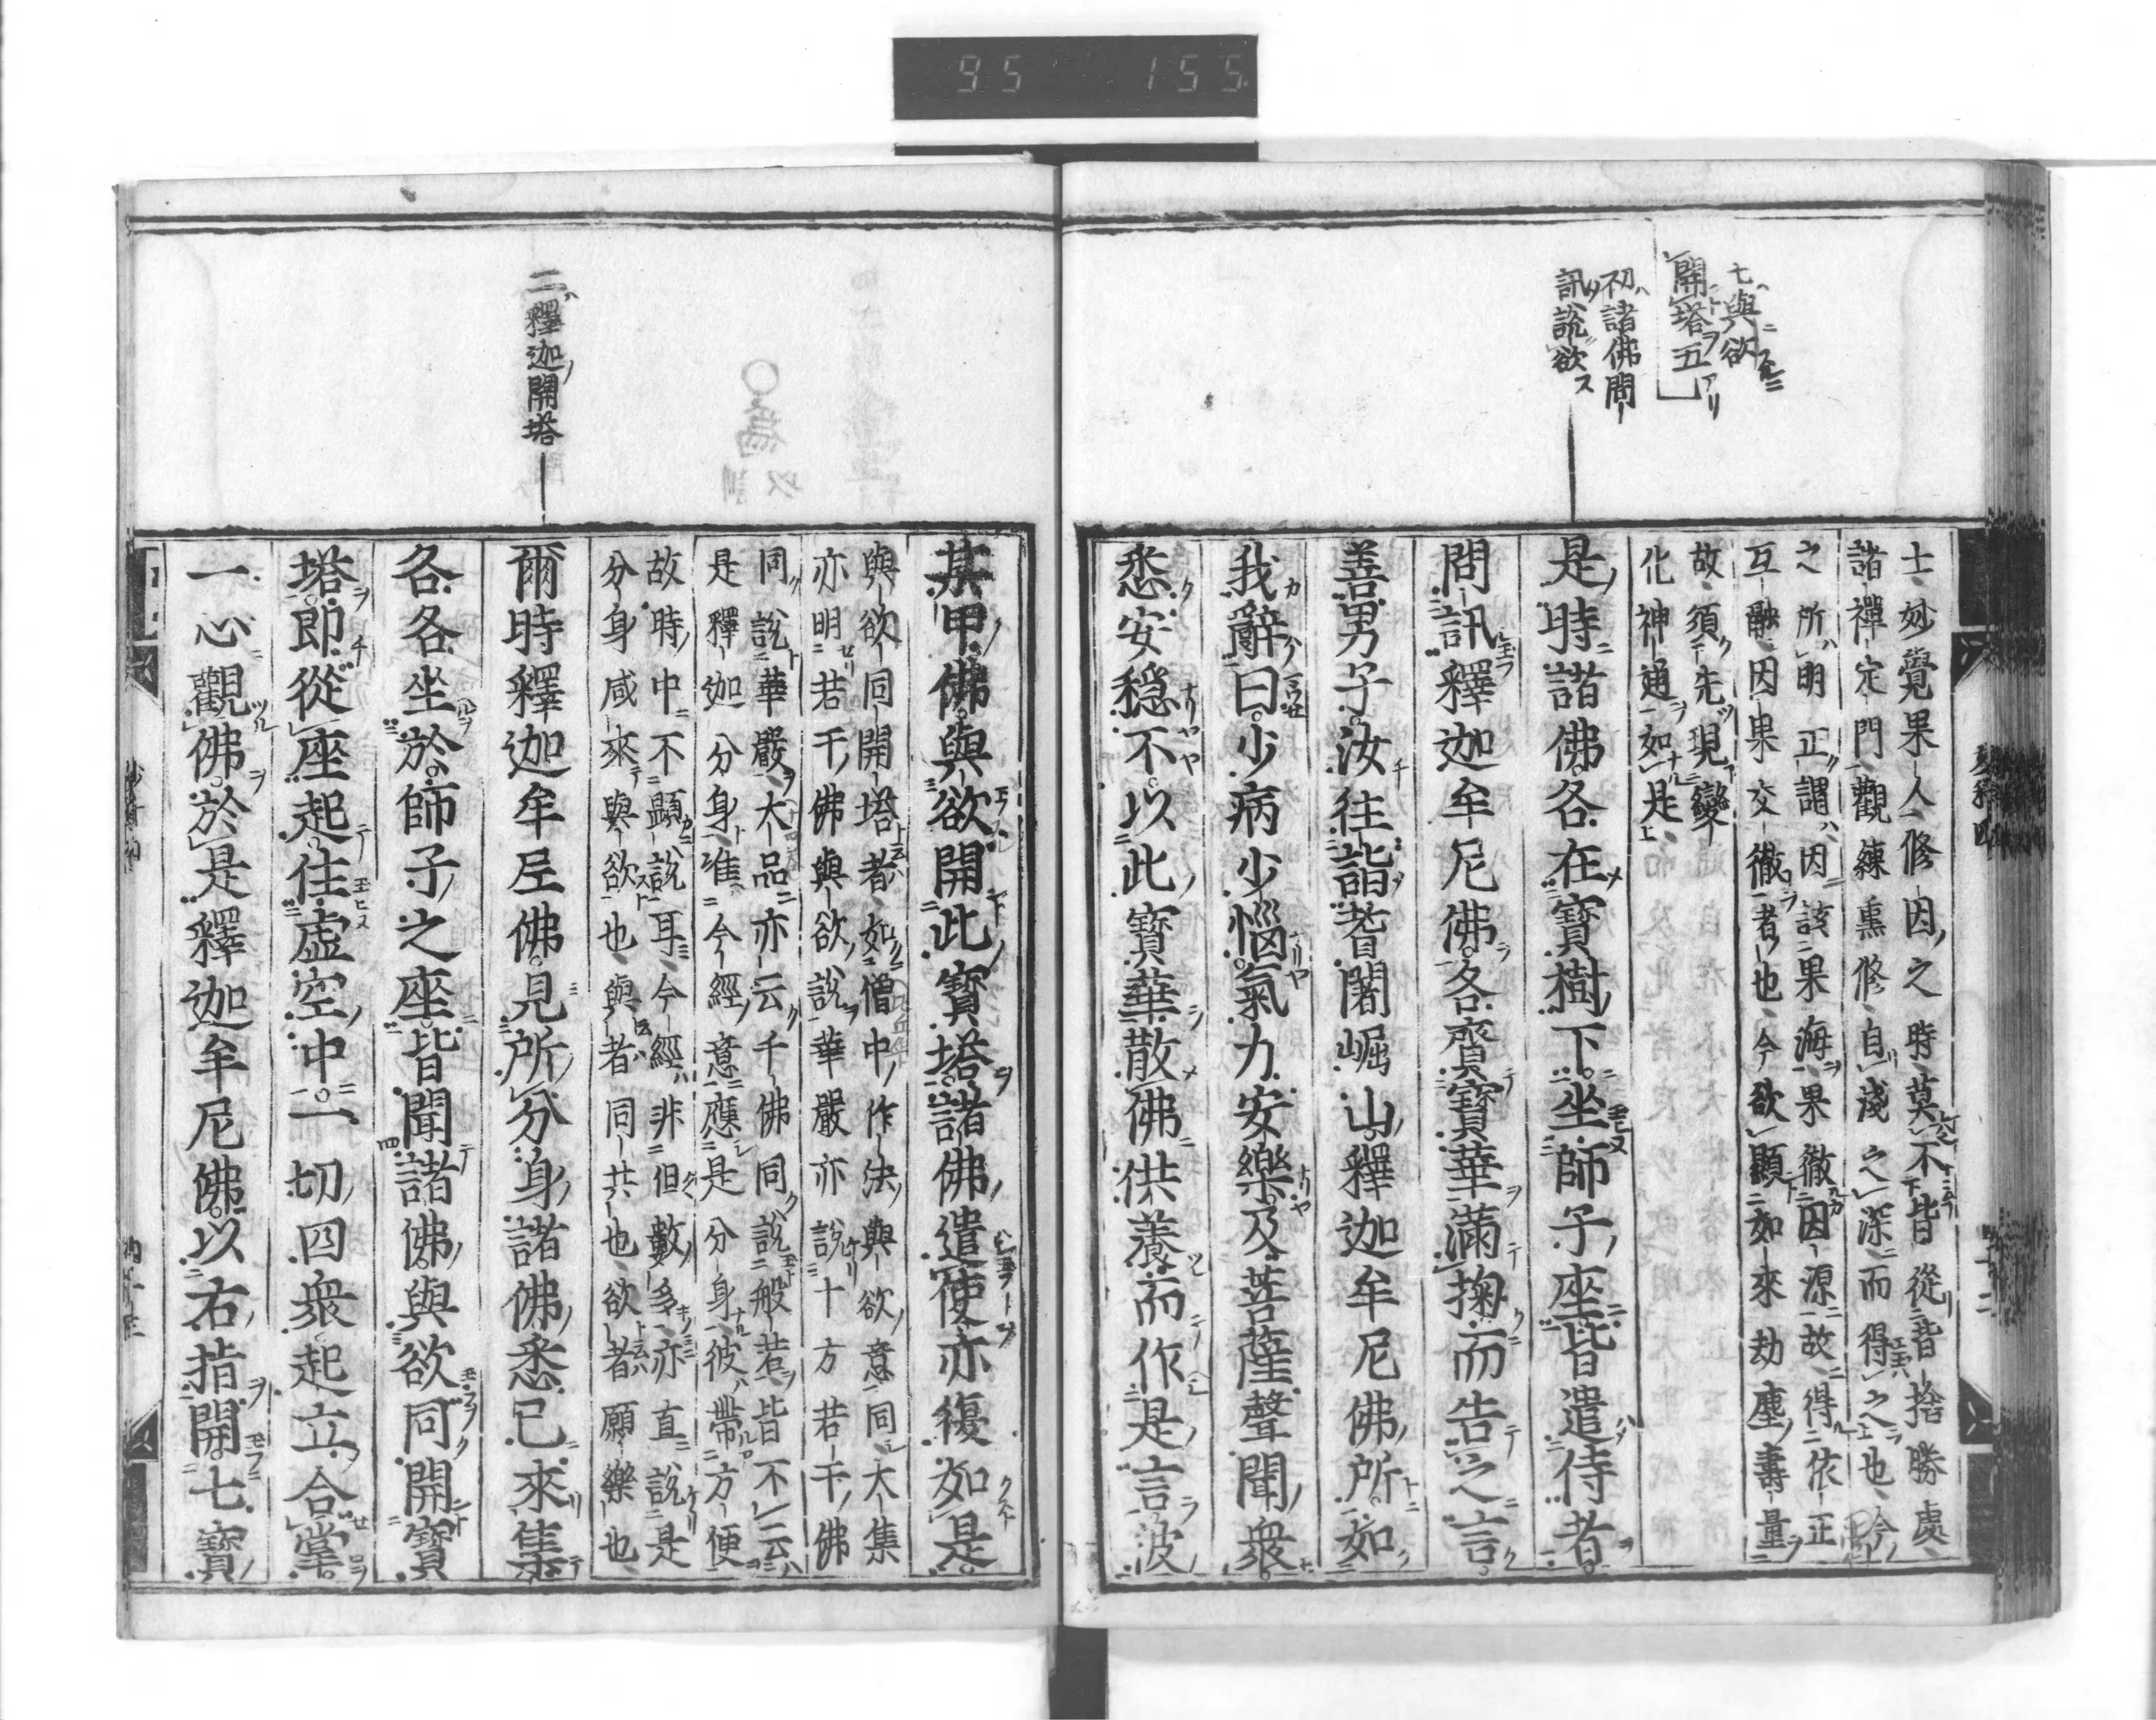 95 155
七與欲
開塔五
初諸佛問
訊說欲
士妙覺果人修因之時莫不皆從背捨勝處
諸禪定門觀練熏修自淺之深而得之也今
之所明正謂因該果海果徹因源故得依正
互融因果交徹者也今欲顯如來劫塵壽量
故須先現變
化神通如是
是時諸佛各在寶樹下坐師子座皆遣侍者
問訊釋迦牟尼佛各齎寶華滿掬而告之言
善男子汝往詣耆闍崛山釋迦牟尼佛所如
我辭曰少病少惱氣力安樂及菩薩聲聞衆
悉安穩不以此寶華散佛供養而作是言彼
二釋迦開塔
某甲佛與欲開此寶塔諸佛遣使亦復如是
與欲同開塔者如僧中作法與欲意同大集
亦明若干佛與欲說華嚴亦說十方若干佛
同說華嚴大品亦云千佛同說般若皆不云
是釋迦分身准今經意應是分身彼帶方便
故時中不顯說耳今經非但數多亦直說是
分身咸來與欲也與者同共也欲者願樂也
爾時釋迦牟尼佛見所分身諸佛悉已來集
各各坐於師子之座皆聞諸佛與欲同開寶
塔即從座起住虛空中一切四衆起立合掌
一心觀佛於是釋迦牟尼佛以右指開七寶